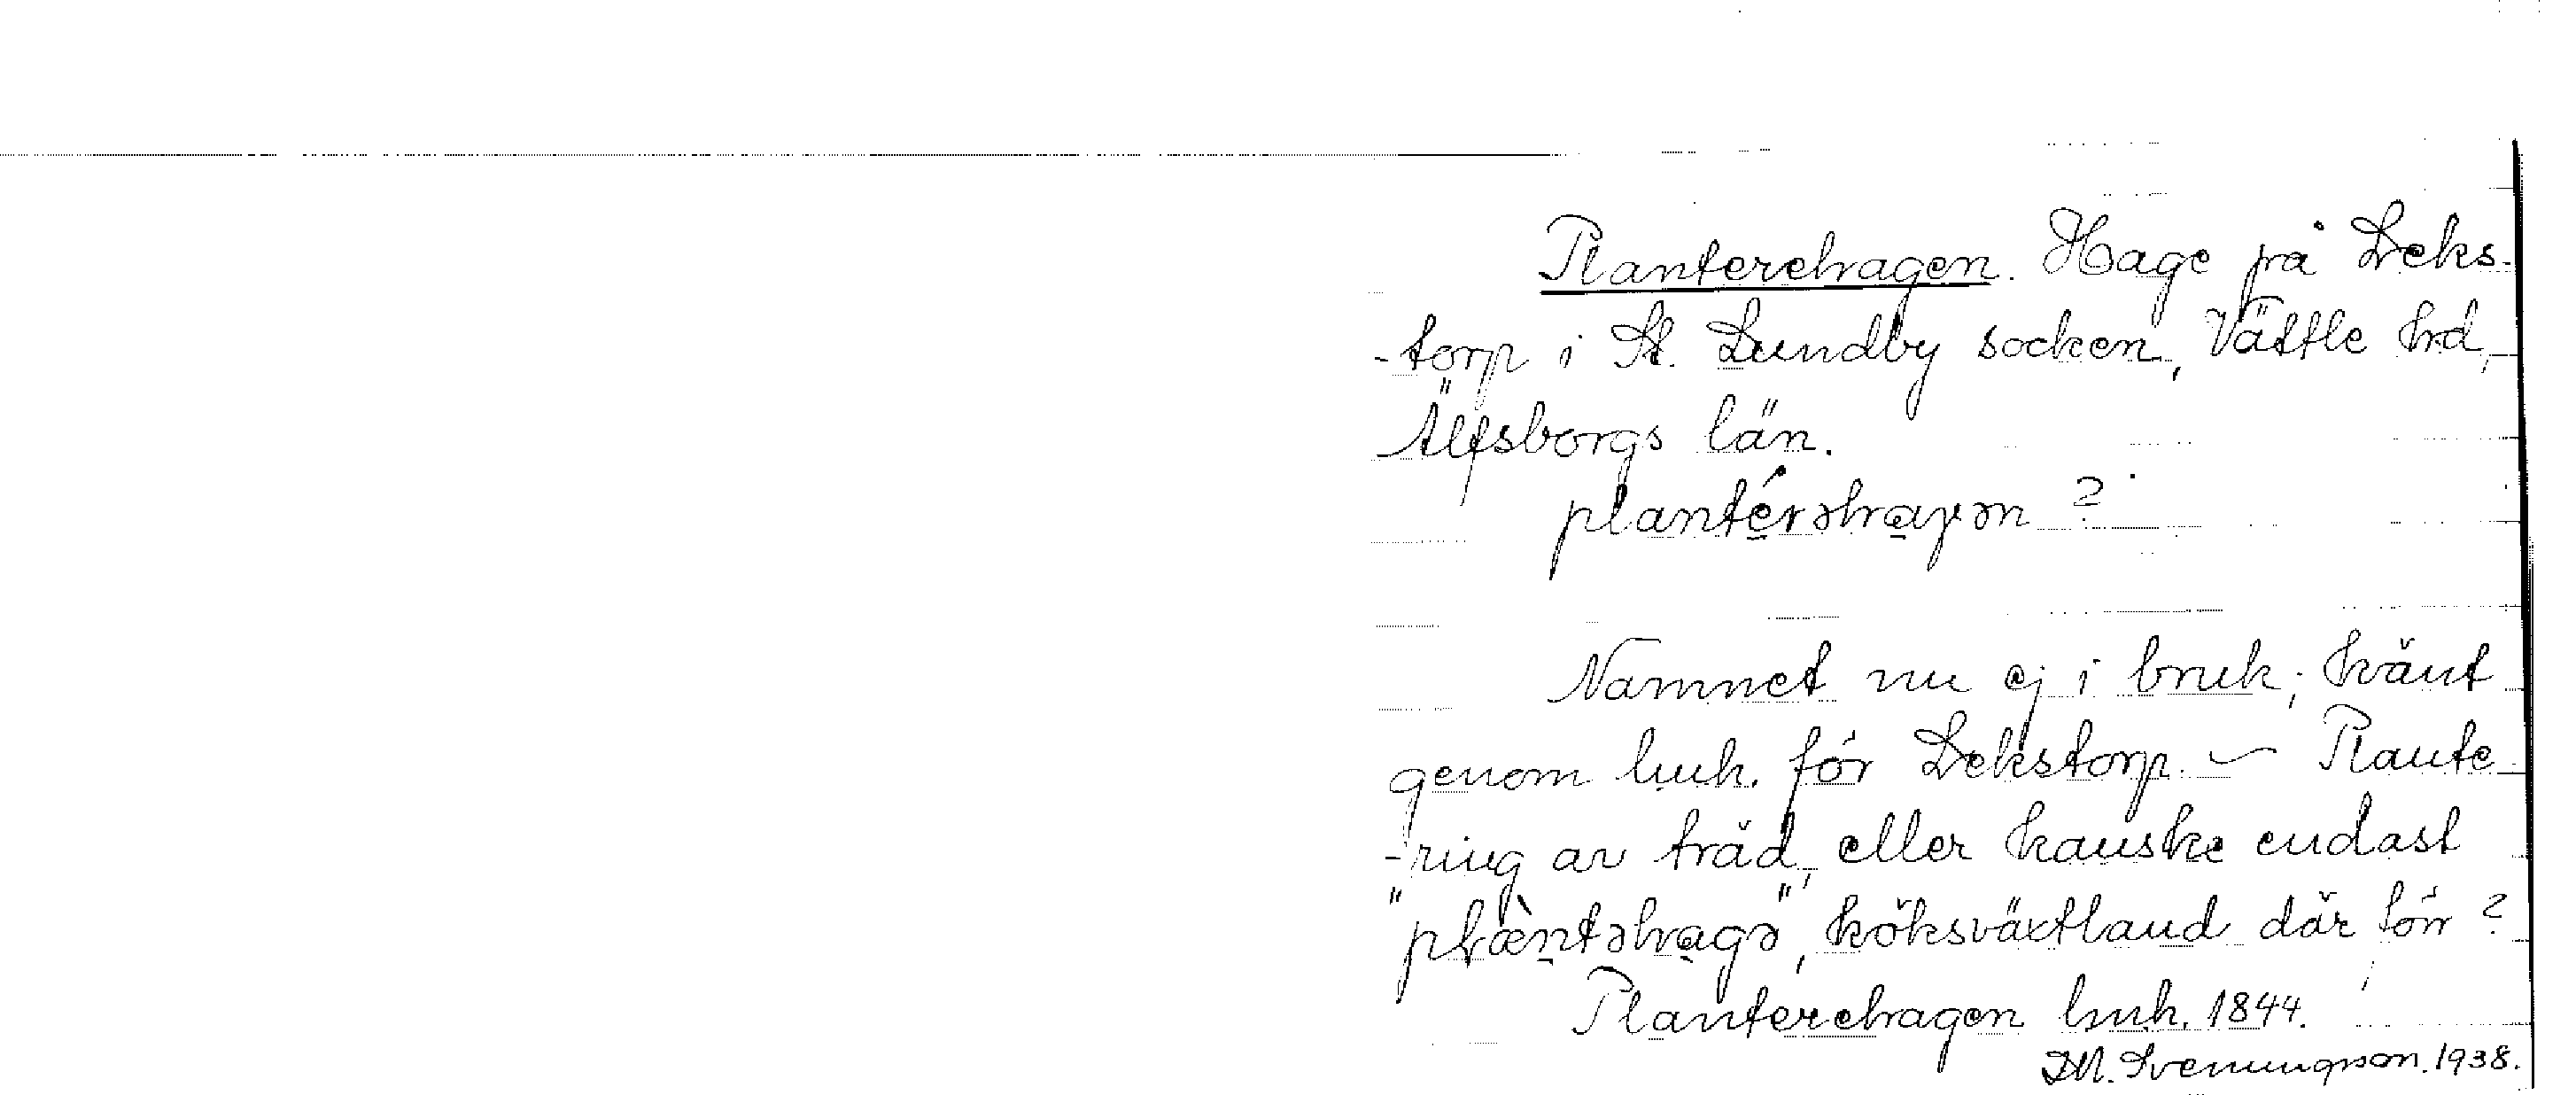 Planterehagen. Hage på Leks-
-torp i St. Lundby socken, Vättle hd,
Älfsborgs län.
plantérəhaγən ?
Namnet nu ej i bruk; känt
genom lmh. för Lekstorp. – Plante-
-ring av träd, eller kanske endast
"plæ̀ntəhagə", köksväxtland där förr ?
Planterehagen lmh. 1844.
D.M. Svenungsson. 1938.